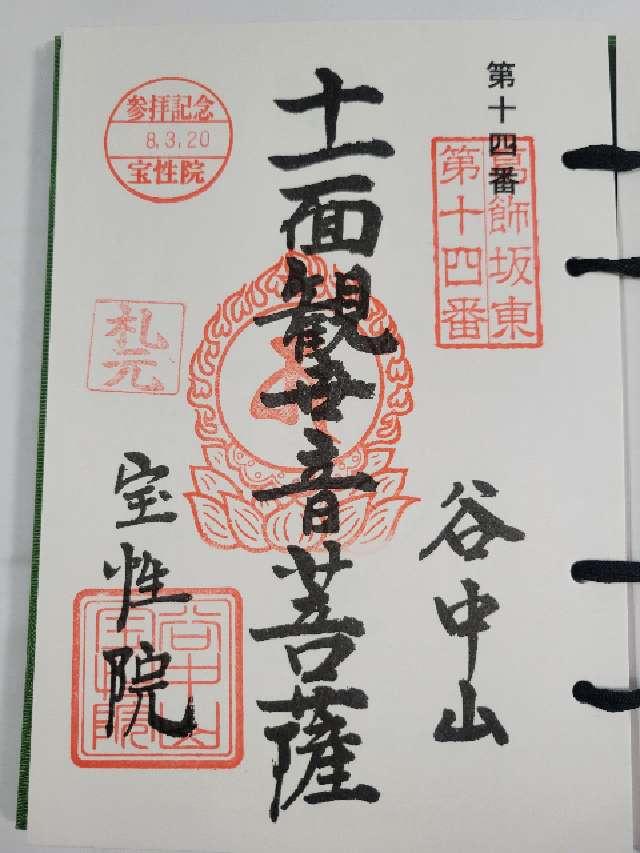 第十四番
葛飾坂東
第十四番
谷中山
十一面観世音菩薩
参拝記念
8.3.20
宝性院
札元
宝性院
谷中山
宝性院